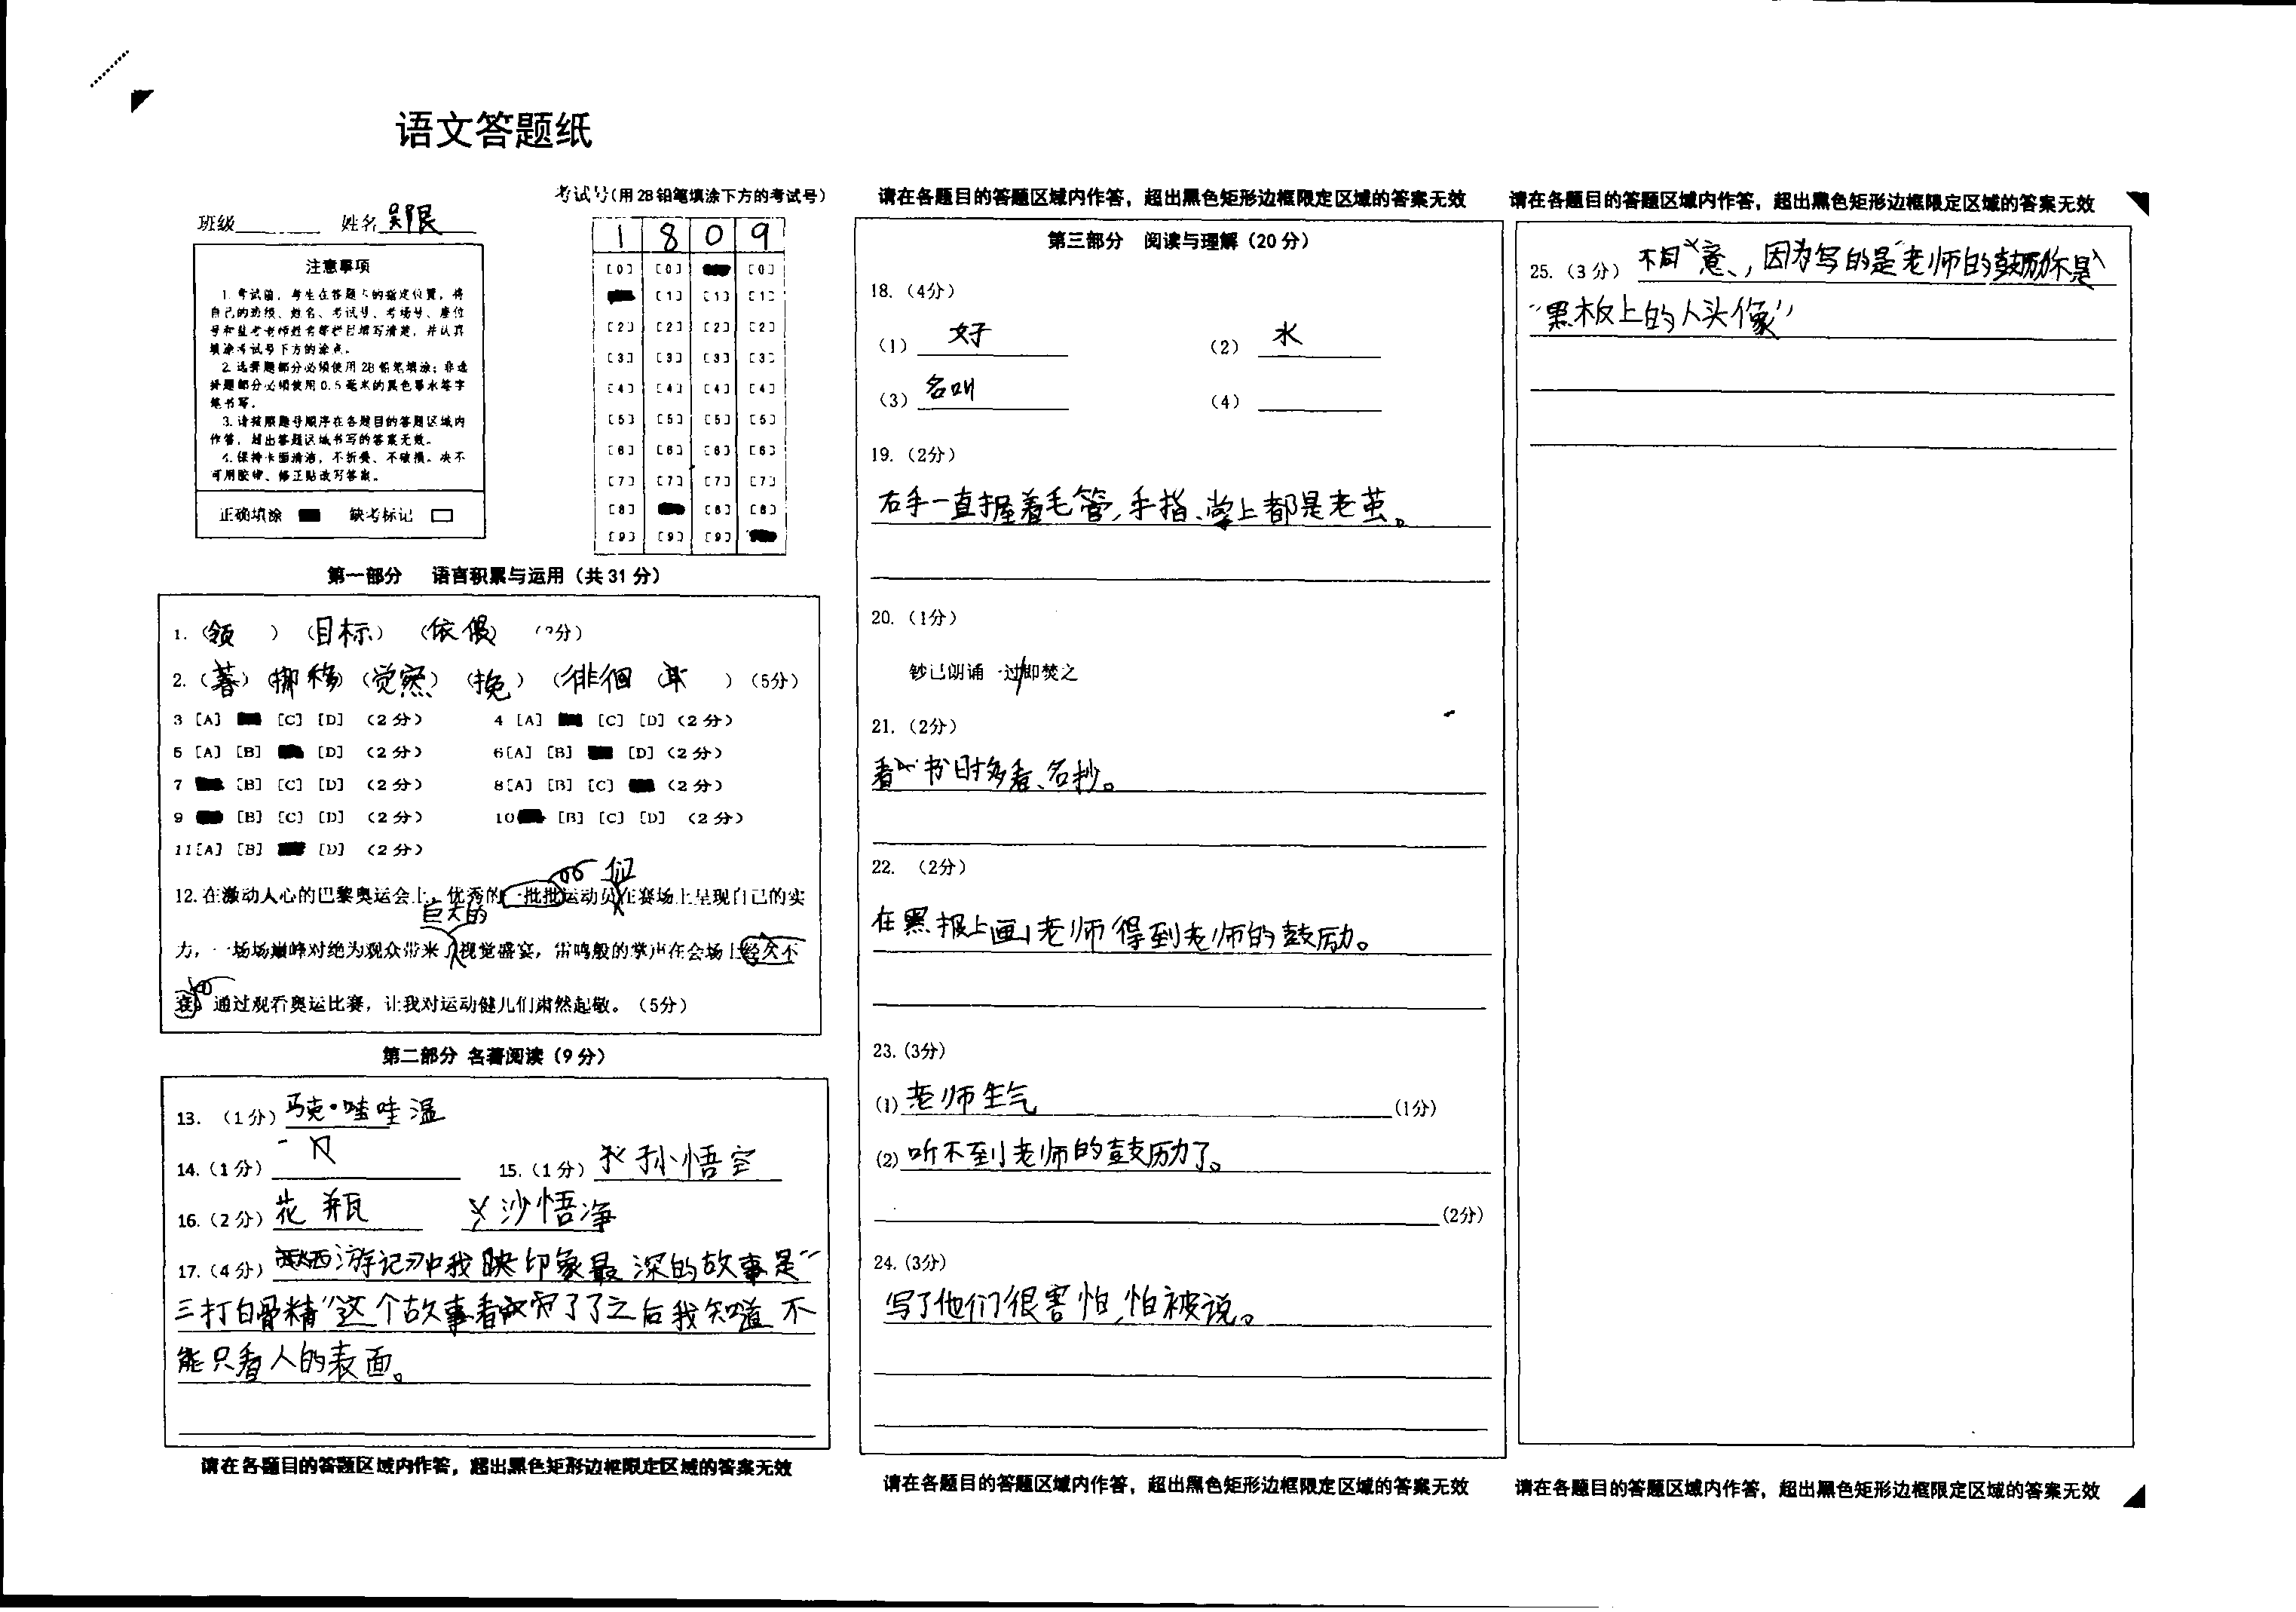 语文答题纸
班级 姓名
考试号(用2B铅笔填涂下方的考试号)
1 8 0 9
[0] [0] [0]
[1] [1] [1]
[2] [2] [2] [2]
[3] [3] [3] [3]
[4] [4] [4] [4]
[5] [5] [5] [5]
[6] [6] [6] [6]
[7] [7] [7] [7]
[8] [8] [8]
[9] [9] [9]
注意事项
1.考试前,考生在答题卡的指定位置,将
自己的班级、姓名、考试号、考场号、座位
号和监考老师姓名等栏目填写清楚,并认真
填涂考试号下方的涂点。
2.选择题部分必须使用2B铅笔填涂;非选
择题部分必须使用0.5毫米的黑色墨水签字
笔书写。
3.请按照题号顺序在各题目的答题区域内
作答,超出答题区域书写的答案无效。
4.保持卡面清洁,不折叠、不破损。决不
可用胶带、修正贴改写答案。
正确填涂 缺考标记
第一部分 语言积累与运用(共31分)
1. (领 ) (目标) (依偎)
2. (著) (挪移) (觉察) (挽) (徘徊 ) (5分)
3 [A] [C] [D] (2分) 4 [A] [C] [D] (2分)
5 [A] [B] [D] (2分) 6[A] [B] [D] (2分)
7 [B] [C] [D] (2分) 8[A] [B] [C] (2分)
9 [B] [C] [D] (2分) 10 [B] [C] [D] (2分)
11[A] [B] [D] (2分)
们
12.在激动人心的巴黎奥运会上,优秀的一批批运动员在赛场上呈现自己的实
巨大的
力,一场场巅峰对绝为观众带来了视觉盛宴,雷鸣般的掌声在会场上经久不
衰。通过观看奥运比赛,让我对运动健儿们肃然起敬。(5分)
第二部分 名著阅读(9分)
13. (1分) 马克·哇哇温
14. (1分) 15. (1分) 孙悟空
16. (2分) 花瓶 沙悟净
17. (4分) 西游记》中我映印象最深的故事是“
三打白骨精”这个故事看完了了之后我知道不
能只看人的表面。
请在各题目的答题区域内作答,超出黑色矩形边框限定区域的答案无效
请在各题目的答题区域内作答,超出黑色矩形边框限定区域的答案无效
第三部分 阅读与理解(20分)
18. (4分)
(1) 好 (2) 水
(3) 名叫 (4)
19. (2分)
右手一直握着毛管,手指、掌上都是老茧。
20. (1分)
钞已朗诵一过/即焚之
21. (2分)
看书时多看、名抄。
22. (2分)
在黑报上画老师得到老师的鼓励。
23. (3分)
(1) 老师生气 (1分)
(2) 听不到老师的鼓励了。
(2分)
24. (3分)
写了他们很害怕,怕被说。
请在各题目的答题区域内作答,超出黑色矩形边框限定区域的答案无效
请在各题目的答题区域内作答,超出黑色矩形边框限定区域的答案无效
25. (3分) 不同意,因为写的是老师的鼓励不是
“黑板上的人头像”
请在各题目的答题区域内作答,超出黑色矩形边框限定区域的答案无效